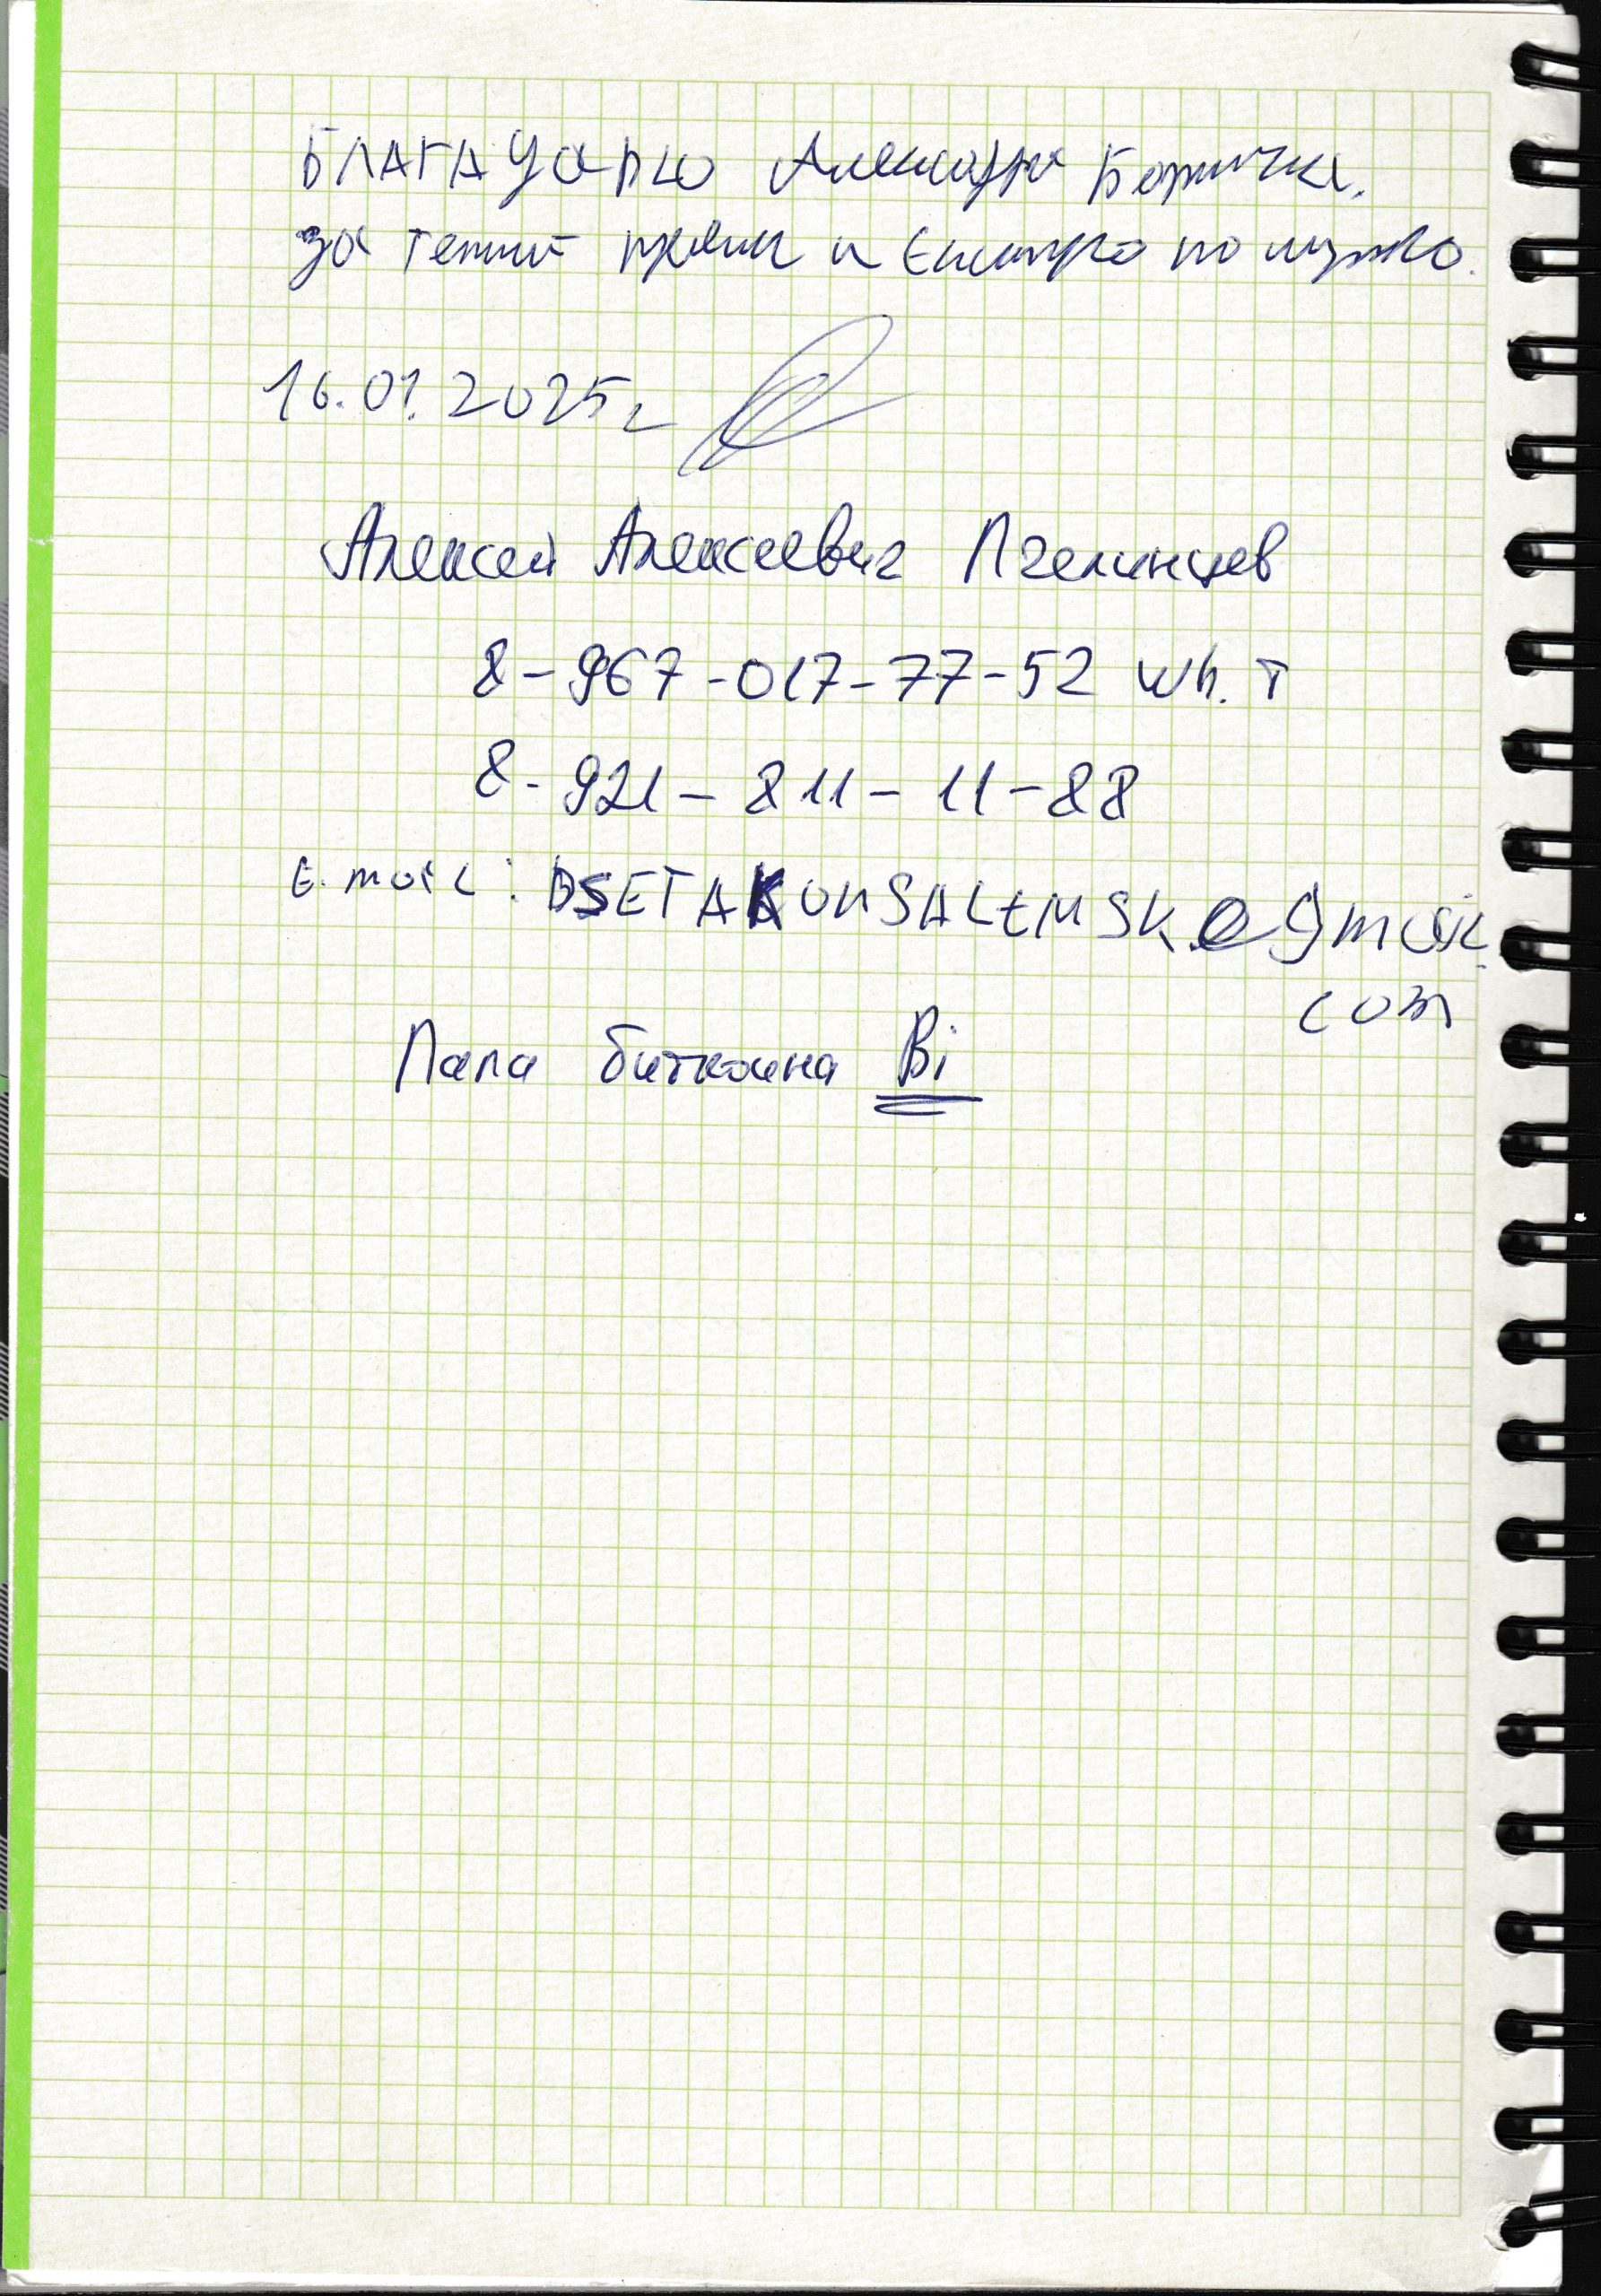 БЛАГАДАРЮ Александра Борисыча.
за теплый прием и
16.01.2025г
Алексей Алексеевич Пчелинцев
8-967-017-77-52 Wh. T
8-921-811-11-88
E. mail: DSETAKONSALEMSK@gmail.
com
Папа биткоина Bi